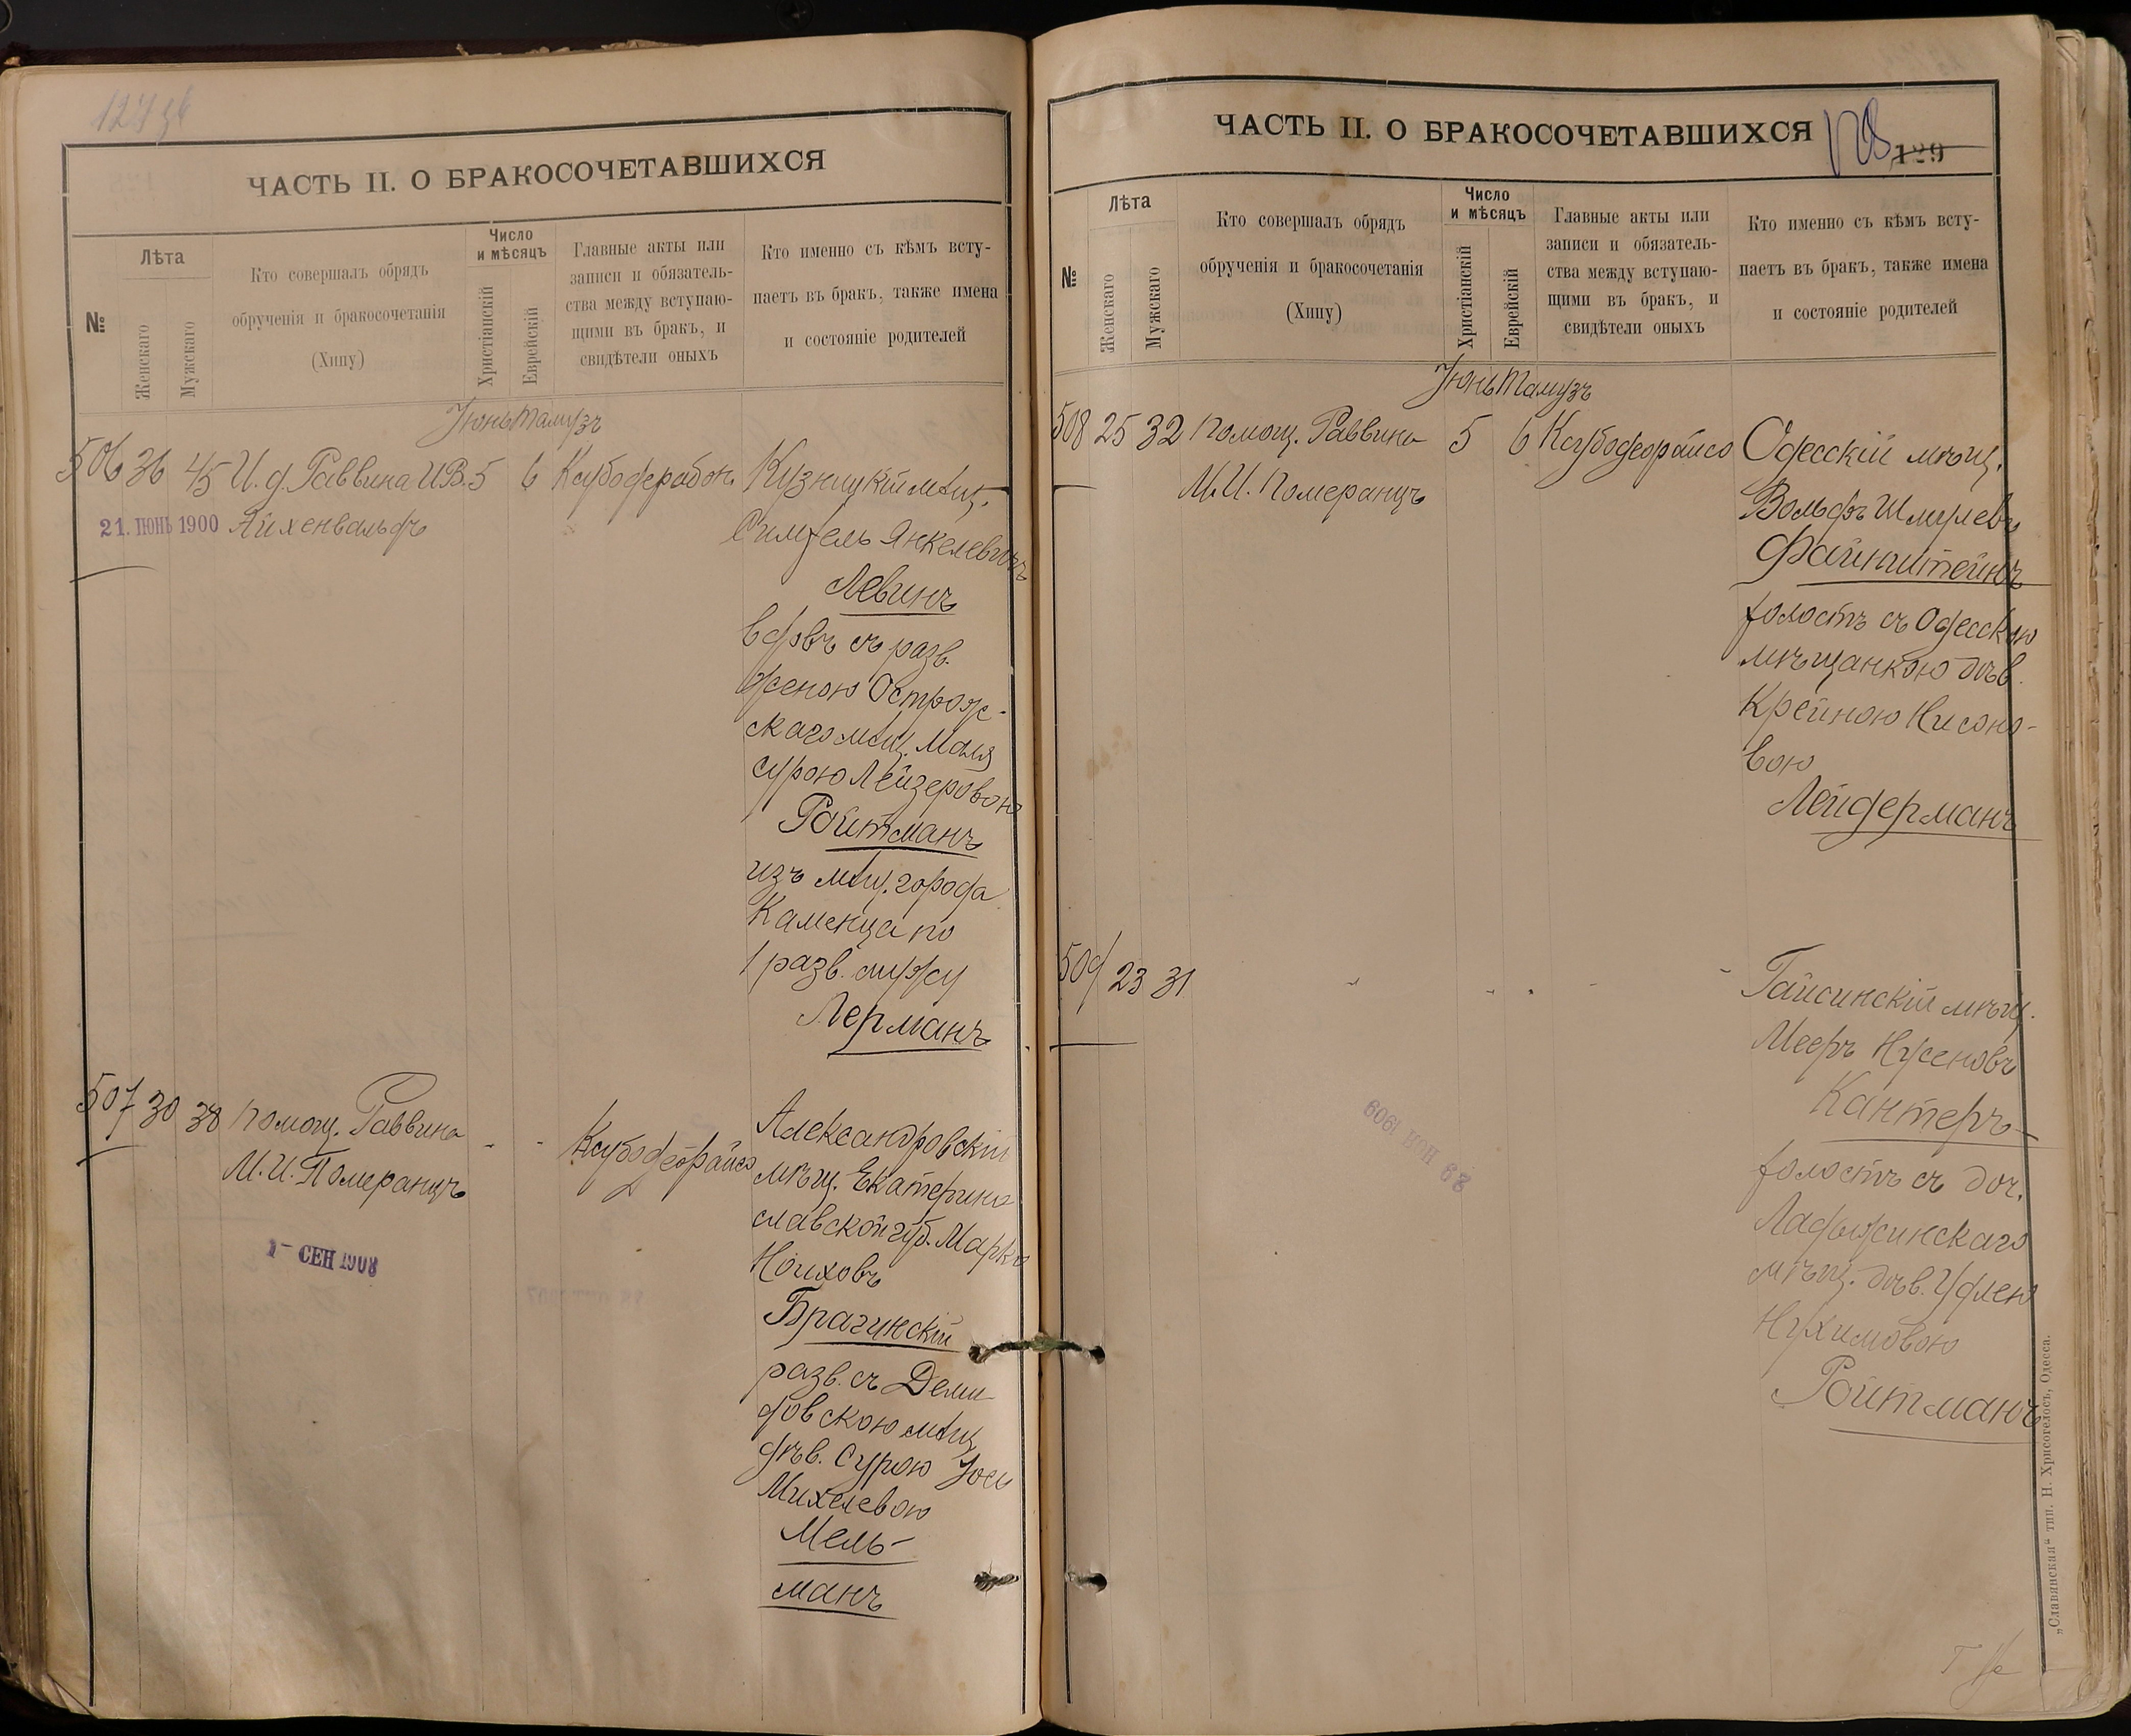 ЧАСТЬ II. О БРАКОСОЧЕТАВШИХСЯ
№
Лѣта
Женскаго
Мужскаго
Кто совершалъ обрядъ
обрученія и бракосочетанія
(Хипу)
Число
и мѣсяцъ
Христіанскій
Еврейскій
Главные акты или
записи и обязатель-
ства между вступаю-
щими въ бракъ, и
свидѣтели оныхъ
Кто именно съ кѣмъ всту-
паетъ въ бракъ, также имена
и состояніе родителей
Іюнь Тамузъ
506 36 45 И. д. Раввина И.В. 5 6
Айхенвальдъ
21. ІЮНЬ 1900
Симхель Янкелевичъ
Левинъ
вдовъ съ разв.
женою Острож-
скаго мѣщ. Маля
Сурою Лейзеровою
Ройтманъ
изъ мѣщ. города
Каменца по
1 разв. мужу
Лерманъ
507 30 38 Помощ. Раввина - - Ксубодеорайсо
М. И. Померанцъ
1- СЕН 1908
Александровскій
мѣщ. Екатерино
славской губ. Марко
Ноиховъ
Брагинскій
разв. съ Деми
довскою мѣщ.
дѣв. Сурою Іось
Михелевою
Мель-
манъ
ЧАСТЬ II. О БРАКОСОЧЕТАВШИХСЯ
128
129
№
Лѣта
Женскаго
Мужскаго
Кто совершалъ обрядъ
обрученія и бракосочетанія
(Хипу)
Число
и мѣсяцъ
Христіанскій
Еврейскій
Главные акты или
записи и обязатель-
ства между вступаю-
щими въ бракъ, и
свидѣтели оныхъ
Кто именно съ кѣмъ всту-
паетъ въ бракъ, также имена
и состояніе родителей
Іюнь Тамузъ
508 25 32 Помощ. Раввина 5 6 Ксубодеорайсо
М. И. Померанцъ
Одесскій мѣщ.
Вольфъ Шмулевъ
Файнштейнъ
холостъ съ Одесскою
мѣщанкою дѣв.
Крейною Нисоно-
вою
Лейдерманъ
509 23 31
Гайсинскій мѣщ.
Мееръ Нусеновъ
Кантеръ
холостъ съ доч.
Ладыжинскаго
мѣщ. дѣв. Удлею
Нухимовою
Ройтманъ
„Славянская“ тип. Н. Хрисогелосъ, Одесса.